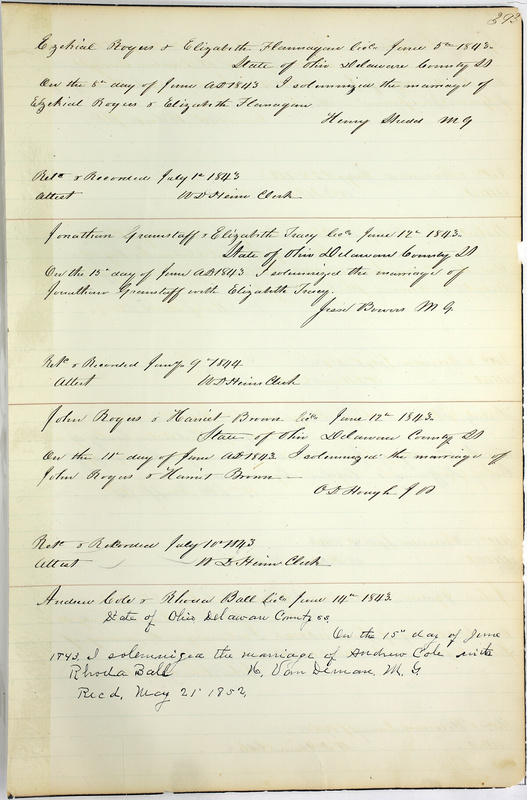 293
Ezekial Rogers & Elizabeth Flannagan Lics June 5th 1843.
State of Ohio Delaware County SS
On the 8th day of June AD 1843 I solemnized the marriage of
Ezekial Rogers & Elizabeth Flanagan
Henry Shedd M G
Retd & Recorded July 1st 1843
Attest W D Heim Clerk
Jonathan Granstaff & Elizabeth Tracy Lics June 12th 1843.
State of Ohio Delaware County SS
On the 15th day of June AD 1843 I solemnized the marriage of
Jonathan Granstaff with Elizabeth Tracy.
Jesse Bowers M G.
Retd & Recorded Jany 9th 1844
Attest W D Heim Clerk
John Rogers & Harriet Brown Lics June 12th 1843.
State of Ohio Delaware County SS
On the 11th day of June AD 1843. I solemnized the marriage of
John Rogers & Harriet Brown
O D Hough J P
Retd & Recorded July 10th 1843
Attest W D Heim Clerk
Andrew Cole & Rhoda Ball Lics June 14th 1843.
State of Ohio Delaware County ss
On the 15th day of June
1843, I solemnized the marriage of Andrew Cole with
Rhoda Ball H. Van Deman, M. G.
Recd, May 21st 1852,